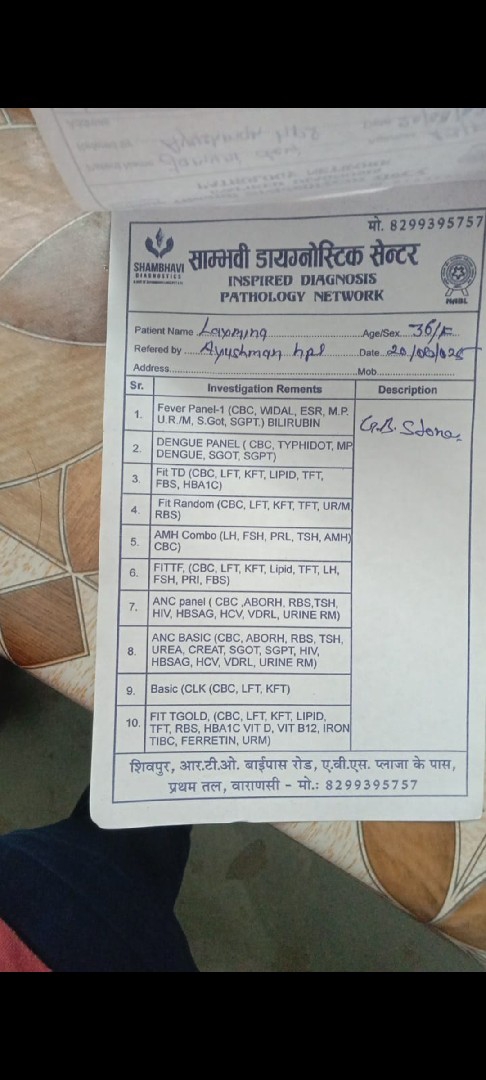 मो. 8299395757
SHAMBHAVI
DIAGNOSTICS
साम्भवी डायग्नोस्टिक सेन्टर
INSPIRED DIAGNOSIS
PATHOLOGY NETWORK
NABL
Patient Name Age/Sex 36/F
Refered by Ayushman hpl Date
Address Mob
Sr. Investigation Rements Description
1. Fever Panel-1 (CBC, WIDAL, ESR, M.P.
U.R./M, S.Got, SGPT.) BILIRUBIN
G.B. Stone
2. DENGUE PANEL ( CBC, TYPHIDOT, MP
DENGUE, SGOT, SGPT)
3. Fit TD (CBC, LFT, KFT, LIPID, TFT,
FBS, HBA1C)
4. Fit Random (CBC, LFT, KFT, TFT, UR/M
RBS)
5. AMH Combo (LH, FSH, PRL, TSH, AMH)
CBC)
6. FITTF, (CBC, LFT, KFT, Lipid, TFT, LH,
FSH, PRI, FBS)
7. ANC panel ( CBC ,ABORH, RBS,TSH,
HIV, HBSAG, HCV, VDRL, URINE RM)
8. ANC BASIC (CBC, ABORH, RBS, TSH,
UREA, CREAT, SGOT, SGPT, HIV,
HBSAG, HCV, VDRL, URINE RM)
9. Basic (CLK (CBC, LFT, KFT)
10. FIT TGOLD, (CBC, LFT, KFT, LIPID,
TFT, RBS, HBA1C VIT D, VIT B12, IRON
TIBC, FERRETIN, URM)
शिवपुर, आर.टी.ओ. बाईपास रोड, ए.वी.एस. प्लाजा के पास,
प्रथम तल, वाराणसी - मो.: 8299395757